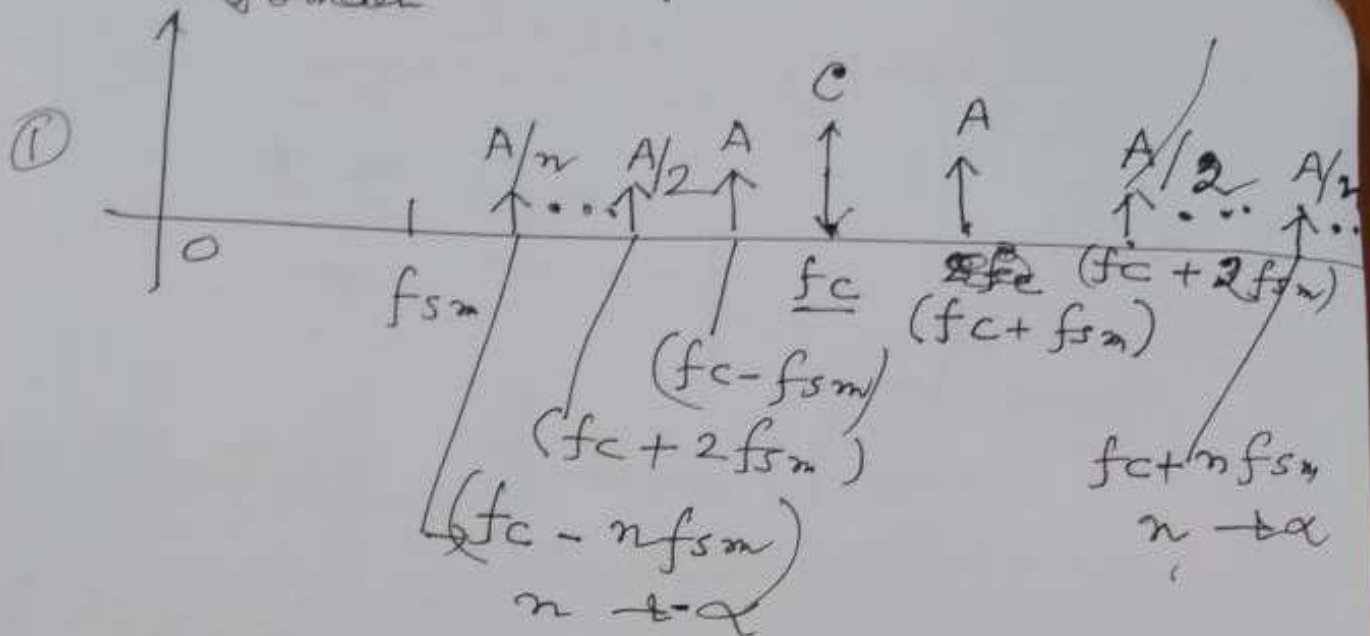 ①
C
A/n ... A/2 A A A/2 ... A/n ..
0 fsm fc (fc + 2fsm)
(fc + fsm)
(fc - fsm)
(fc + 2fsm)
fc + nfsm
(fc - nfsm)
n
n